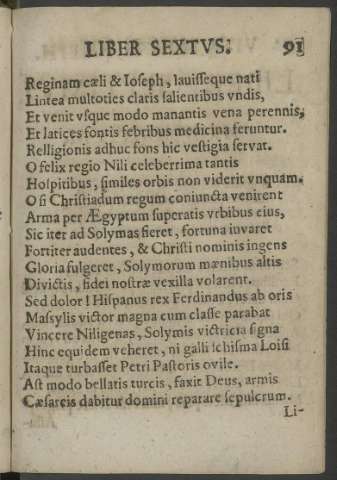 LIBER SEXTVS. 91
Reginam cæli & Ioseph, lauisseque nati
Lintea multoties claris salientibus vndis,
Et venit vsque modo manantis vena perennis,
Et latices fontis febribus medicina feruntur.
Relligionis adhuc fons hic vestigia servat.
O felix regio Nili celeberrima tantis
Hospitibus, similes orbis non viderit vnquam.
O si Christiadum regum coniuncta venirent
Arma per Ægyptum superatis vrbibus eius,
Sic iter ad Solymas fieret, fortuna iuvaret
Fortiter audentes, & Christi nominis ingens
Gloria fulgeret, Solymorum mœnibus altis
Divictis, fidei nostræ vexilla volarent.
Sed dolor! Hispanus rex Ferdinandus ab oris
Massylis victor magna cum classe parabat
Vincere Niligenas, Solymis victricia signa
Hinc equidem veheret, ni galli schisma Loisi
Itaque turbasset Petri Pastoris ovile.
Ast modo bellatis turcis, faxit Deus, armis
Cæsareis dabitur domini reparare sepulcrum.
Li-